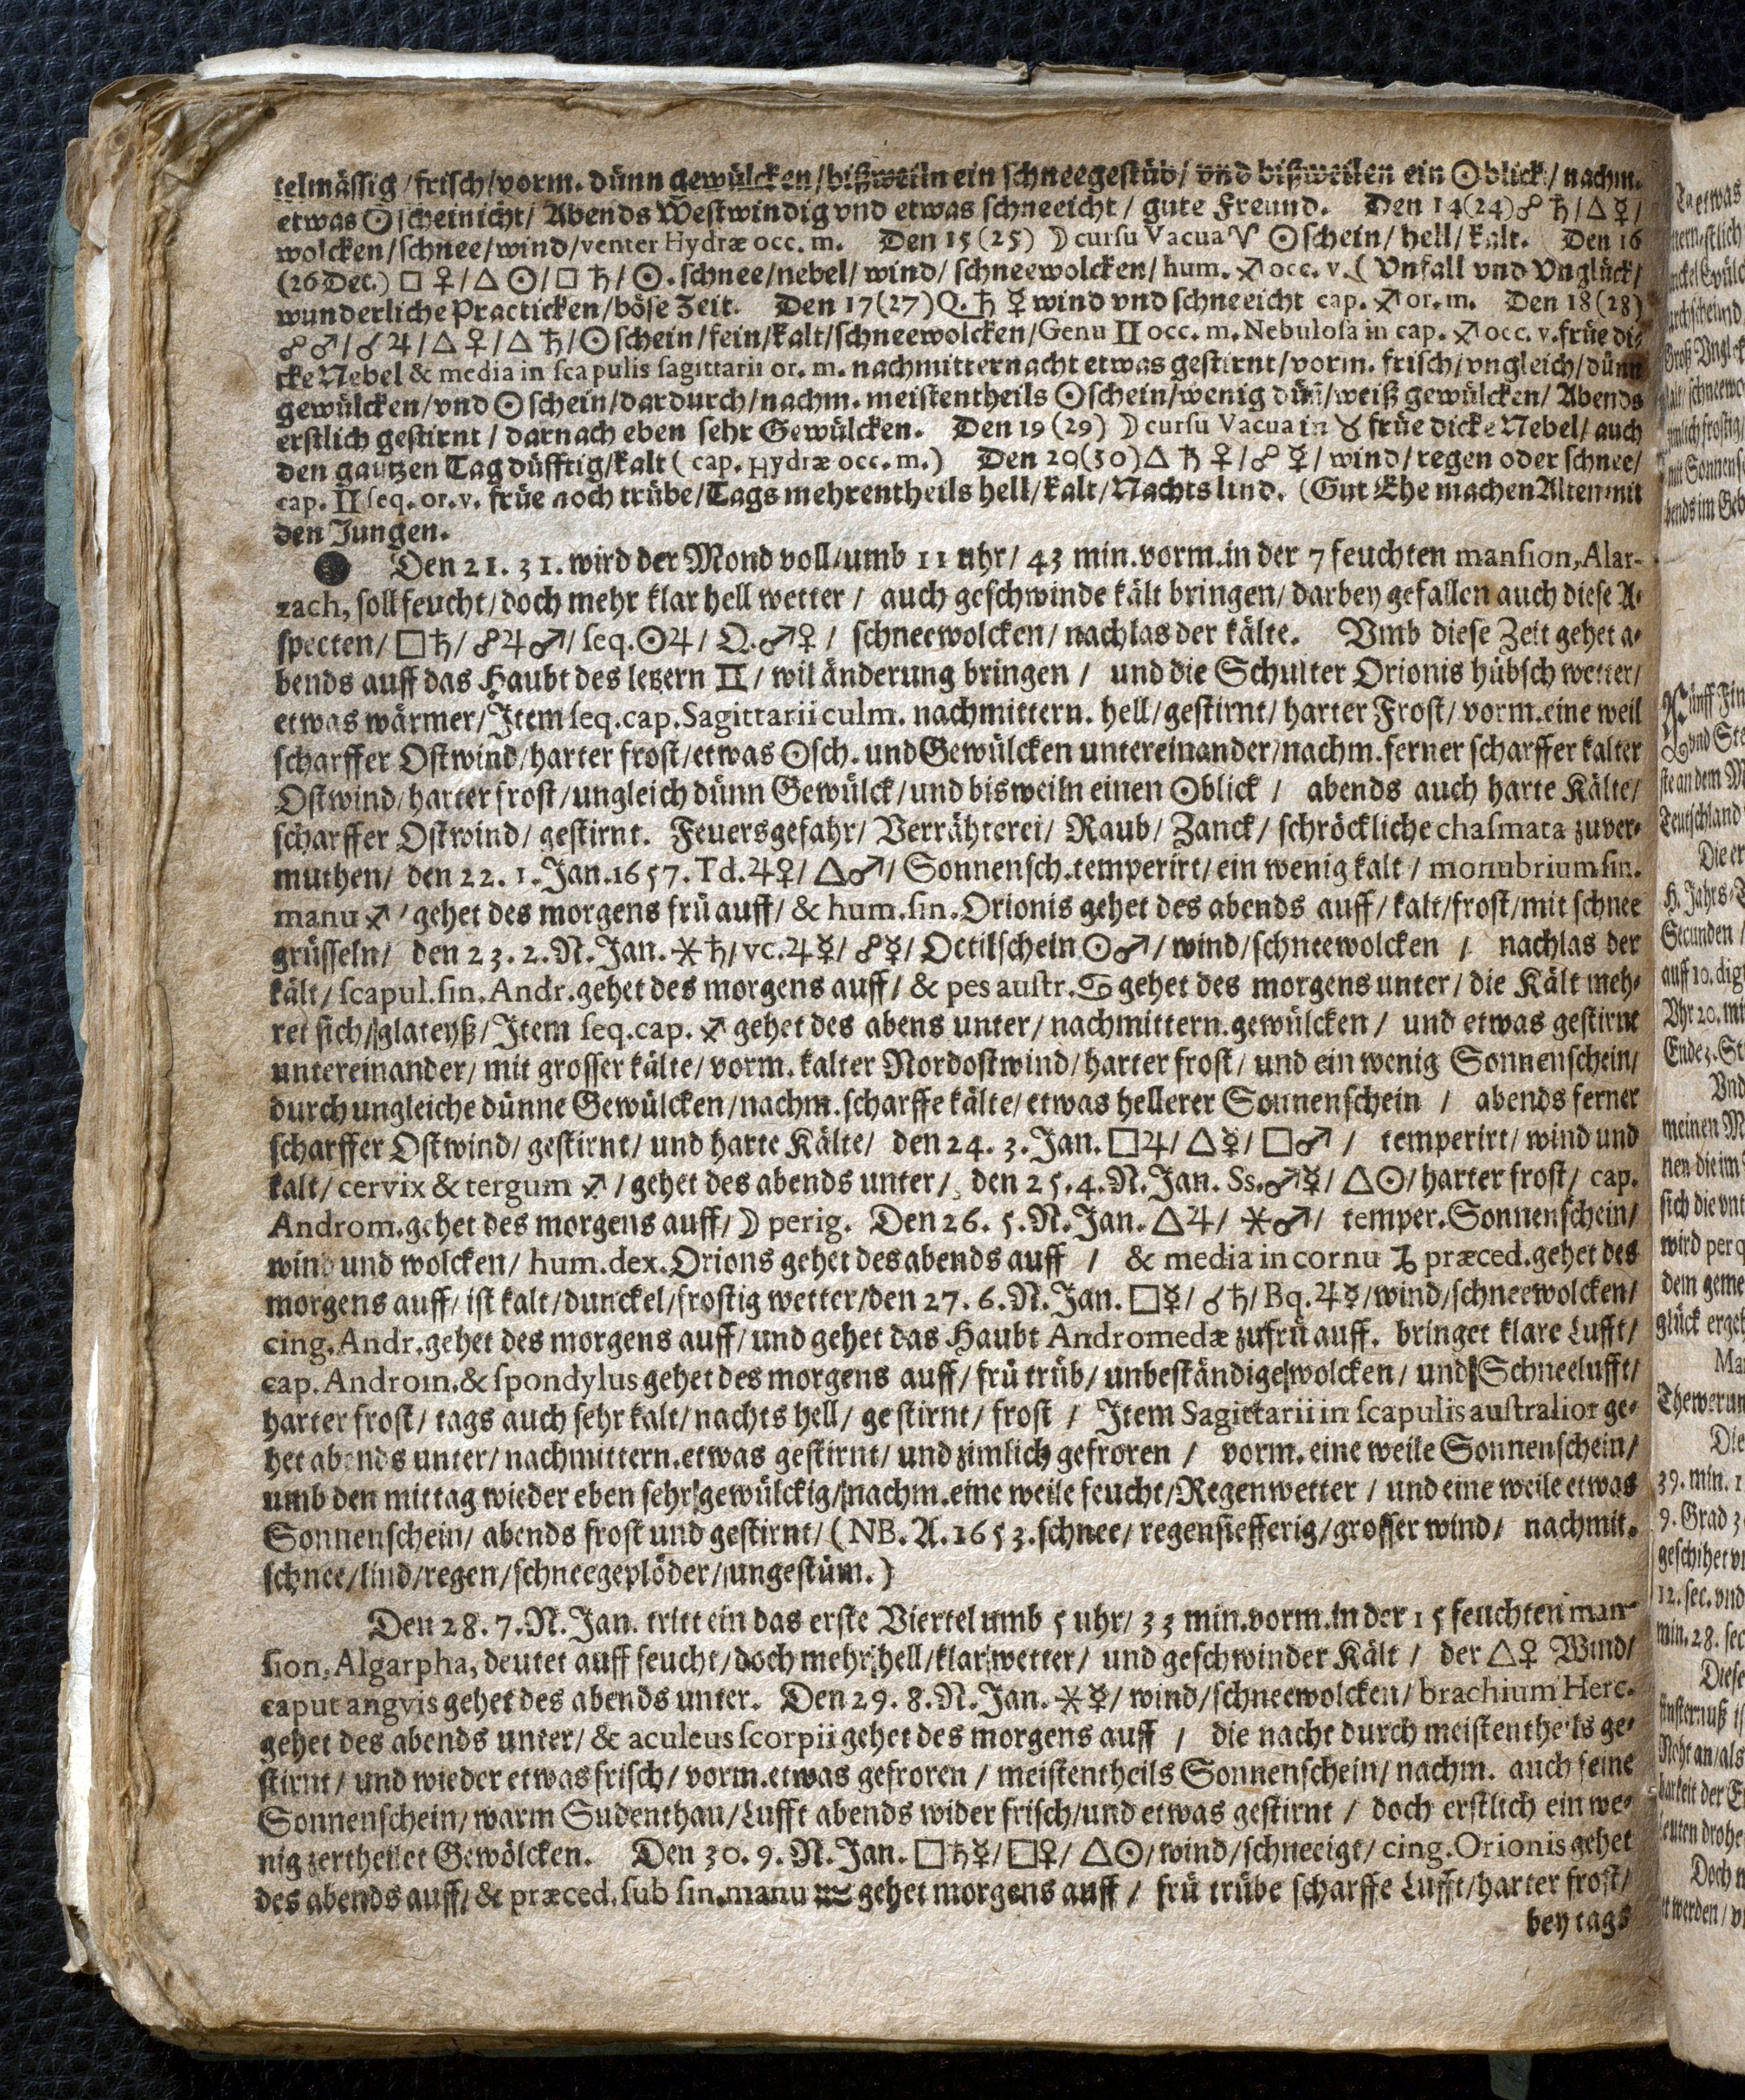 telmässig/frisch/vorm. dünn gewülcken/bißweiln ein schneegestüb/ vnd bißweilen ein ☉blick/ nachm.
etwas ☉scheinicht/ Abends Westwindig vnd etwas schneeicht / gute Freund. Den 14(24)☍ ♄/△☿/
wolcken/schnee/wind/venter Hydræ occ. m. Den 15 (25) ☽ cursu Vacua ♈ ☉schein/hell/kalt. Den 16
(26 Dec.) □ ♀/△ ☉/□ ♄/☉. schnee/nebel/ wind/ schneewolcken/ hum. ♐ occ. v. ( Vnfall vnd Vnglück/
wunderliche Practicken/böse Zeit. Den 17(27)Q. ♄ ☿ wind vnd schneeicht cap. ♐ or. m. Den 18 (28)
☍ ♂/☌ ♃/△ ♀/△ ♄/☉schein/fein/kalt/schneewolcken/Genu ♊ occ. m. Nebulosa in cap. ♐ occ. v. früe di-
cke Nebel & media in scapulis sagittarii or. m. nachmitternacht etwas gestirnt/vorm. frisch/vngleich/dünn
gewülcken/vnd ☉schein/dardurch/nachm. meistentheils ☉schein/wenig dün̄/weiß gewülcken/ Abends
erstlich gestirnt / darnach eben sehr Gewülcken. Den 19 (29) ☽ cursu Vacua in ♉ früe dicke Nebel/ auch
den gantzen Tag düfftig/kalt ( cap. Hydræ occ. m.) Den 20(30)△ ♄ ♀/☍ ☿/wind/regen oder schnee/
cap. ♊ seq. or. v. früe noch trübe/Tags mehrentheils hell/kalt/Nachts lind. (Gut Ehe machen Alten mit
den Jungen.
Den 21. 31. wird der Mond voll/umb 11 uhr/ 43 min. vorm. in der 7 feuchten mansion, Alar-
zach, soll feucht/doch mehr klar hell wetter / auch geschwinde kält bringen/ darbey gefallen auch diese A-
specten/ □♄/☍♃♂/seq.☉♃/ Q.♂♀ / schneewolcken/ nachlas der kälte. Vmb diese Zeit gehet a-
bends auff das Haubt des letzern ♊/ wil änderung bringen / und die Schulter Orionis hübsch wetter/
etwas wärmer/Item seq. cap. Sagittarii culm. nachmittern. hell/gestirnt/ harter Frost/ vorm. eine weil
scharffer Ostwind/harter frost/etwas ☉sch. und Gewülcken untereinander/nachm. ferner scharffer kalter
Ostwind/harter frost/ungleich dünn Gewülck/und bisweiln einen ☉blick / abends auch harte Kälte/
scharffer Ostwind/ gestirnt. Feuersgefahr/ Verrähterei/ Raub/ Zanck/ schröckliche chasmata zu ver-
muthen/ den 22. 1. Jan. 1657. Td. ♃♀/ △♂/ Sonnensch. temperirt/ein wenig kalt / monubrium sin.
manu ♐ / gehet des morgens frü auff/ & hum. sin. Orionis gehet des abends auff/ kalt/frost/mit schnee
grüsseln/ den 23. 2. N. Jan. ⚹♄/ vc. ♃☿/ ☍☿/ Octilschein ☉♂/wind/schneewolcken / nachlas der
kält/ scapul. sin. Andr. gehet des morgens auff/ & pes austr. ♋ gehet des morgens unter/ die Kält meh-
ret sich/glateyß/Item seq. cap. ♐ gehet des abens unter/ nachmittern. gewülcken / und etwas gestirnt
untereinander/ mit grosser kälte/ vorm. kalter Nordostwind/harter frost/ und ein wenig Sonnenschein/
durch ungleiche dünne Gewülcken/nachm. scharffe kälte/etwas hellerer Sonnenschein / abends ferner
scharffer Ostwind/ gestirnt/ und harte Kälte/ den 24. 3. Jan. □♃/ △☿/ □♂ / temperirt/ wind und
kalt/ cervix & tergum ♐ / gehet des abends unter/ den 25. 4. N. Jan. Ss. ♂☿/ △☉/harter frost/ cap.
Androm. gehet des morgens auff/☽ perig. Den 26. 5. N. Jan. △♃/ ⚹♂/ temper. Sonnenschein/
wind und wolcken/ hum. dex. Orions gehet des abends auff / & media in cornu ♑ præced. gehet des
morgens auff/ ist kalt/dunckel/frostig wetter/den 27. 6. N. Jan. □☿/ ☌♄/ Bq. ♃☿/wind/schneewolcken/
cing. Andr. gehet des morgens auff/und gehet das Haubt Andromedæ zu frü auff. bringet klare Lufft/
cap. Androm. & spondylus gehet des morgens auff/ frü trüb/ unbeständige wolcken/ und Schneelufft/
harter frost/ tags auch sehr kalt/nachts hell/ gestirnt/ frost / Item Sagittarii in scapulis australior ge-
het abends unter/nachmittern. etwas gestirnt/ und zimlich gefroren / vorm. eine weile Sonnenschein/
umb den mittag wieder eben sehr gewülckig/nachm. eine weile feucht/Regenwetter / und eine weile etwas
Sonnenschein/ abends frost und gestirnt/ (NB. A. 1653. schnee/ regensiefferig/grosser wind/ nachmit.
schnee/lind/regen/schneegeplöder/ungestüm.)
Den 28. 7. N. Jan. tritt ein das erste Viertel umb 5 uhr/ 33 min. vorm. in der 15 feuchten man-
sion, Algarpha, deutet auff feucht/doch mehr hell/klar wetter/ und geschwinder Kält / der △♀ Wind/
caput angvis gehet des abends unter. Den 29. 8. N. Jan. ⚹☿/wind/schneewolcken/ brachium Herc.
gehet des abends unter/ & aculeus scorpii gehet des morgens auff / die nacht durch meistentheils ge-
stirnt/ und wieder etwas frisch/ vorm. etwas gefroren / meistentheils Sonnenschein/ nachm. auch feine
Sonnenschein/warm Sudenthau/Lufft abends wider frisch/und etwas gestirnt / doch erstlich ein we-
nig zertheilet Gewölcken. Den 30. 9. N. Jan. □♄☿/□♀/ △☉/wind/schneeigt/ cing. Orionis gehet
des abends auff/ & præced. sub sin. manu ♒ gehet morgens auff / frü trübe scharffe Lufft/harter frost/
bey tags